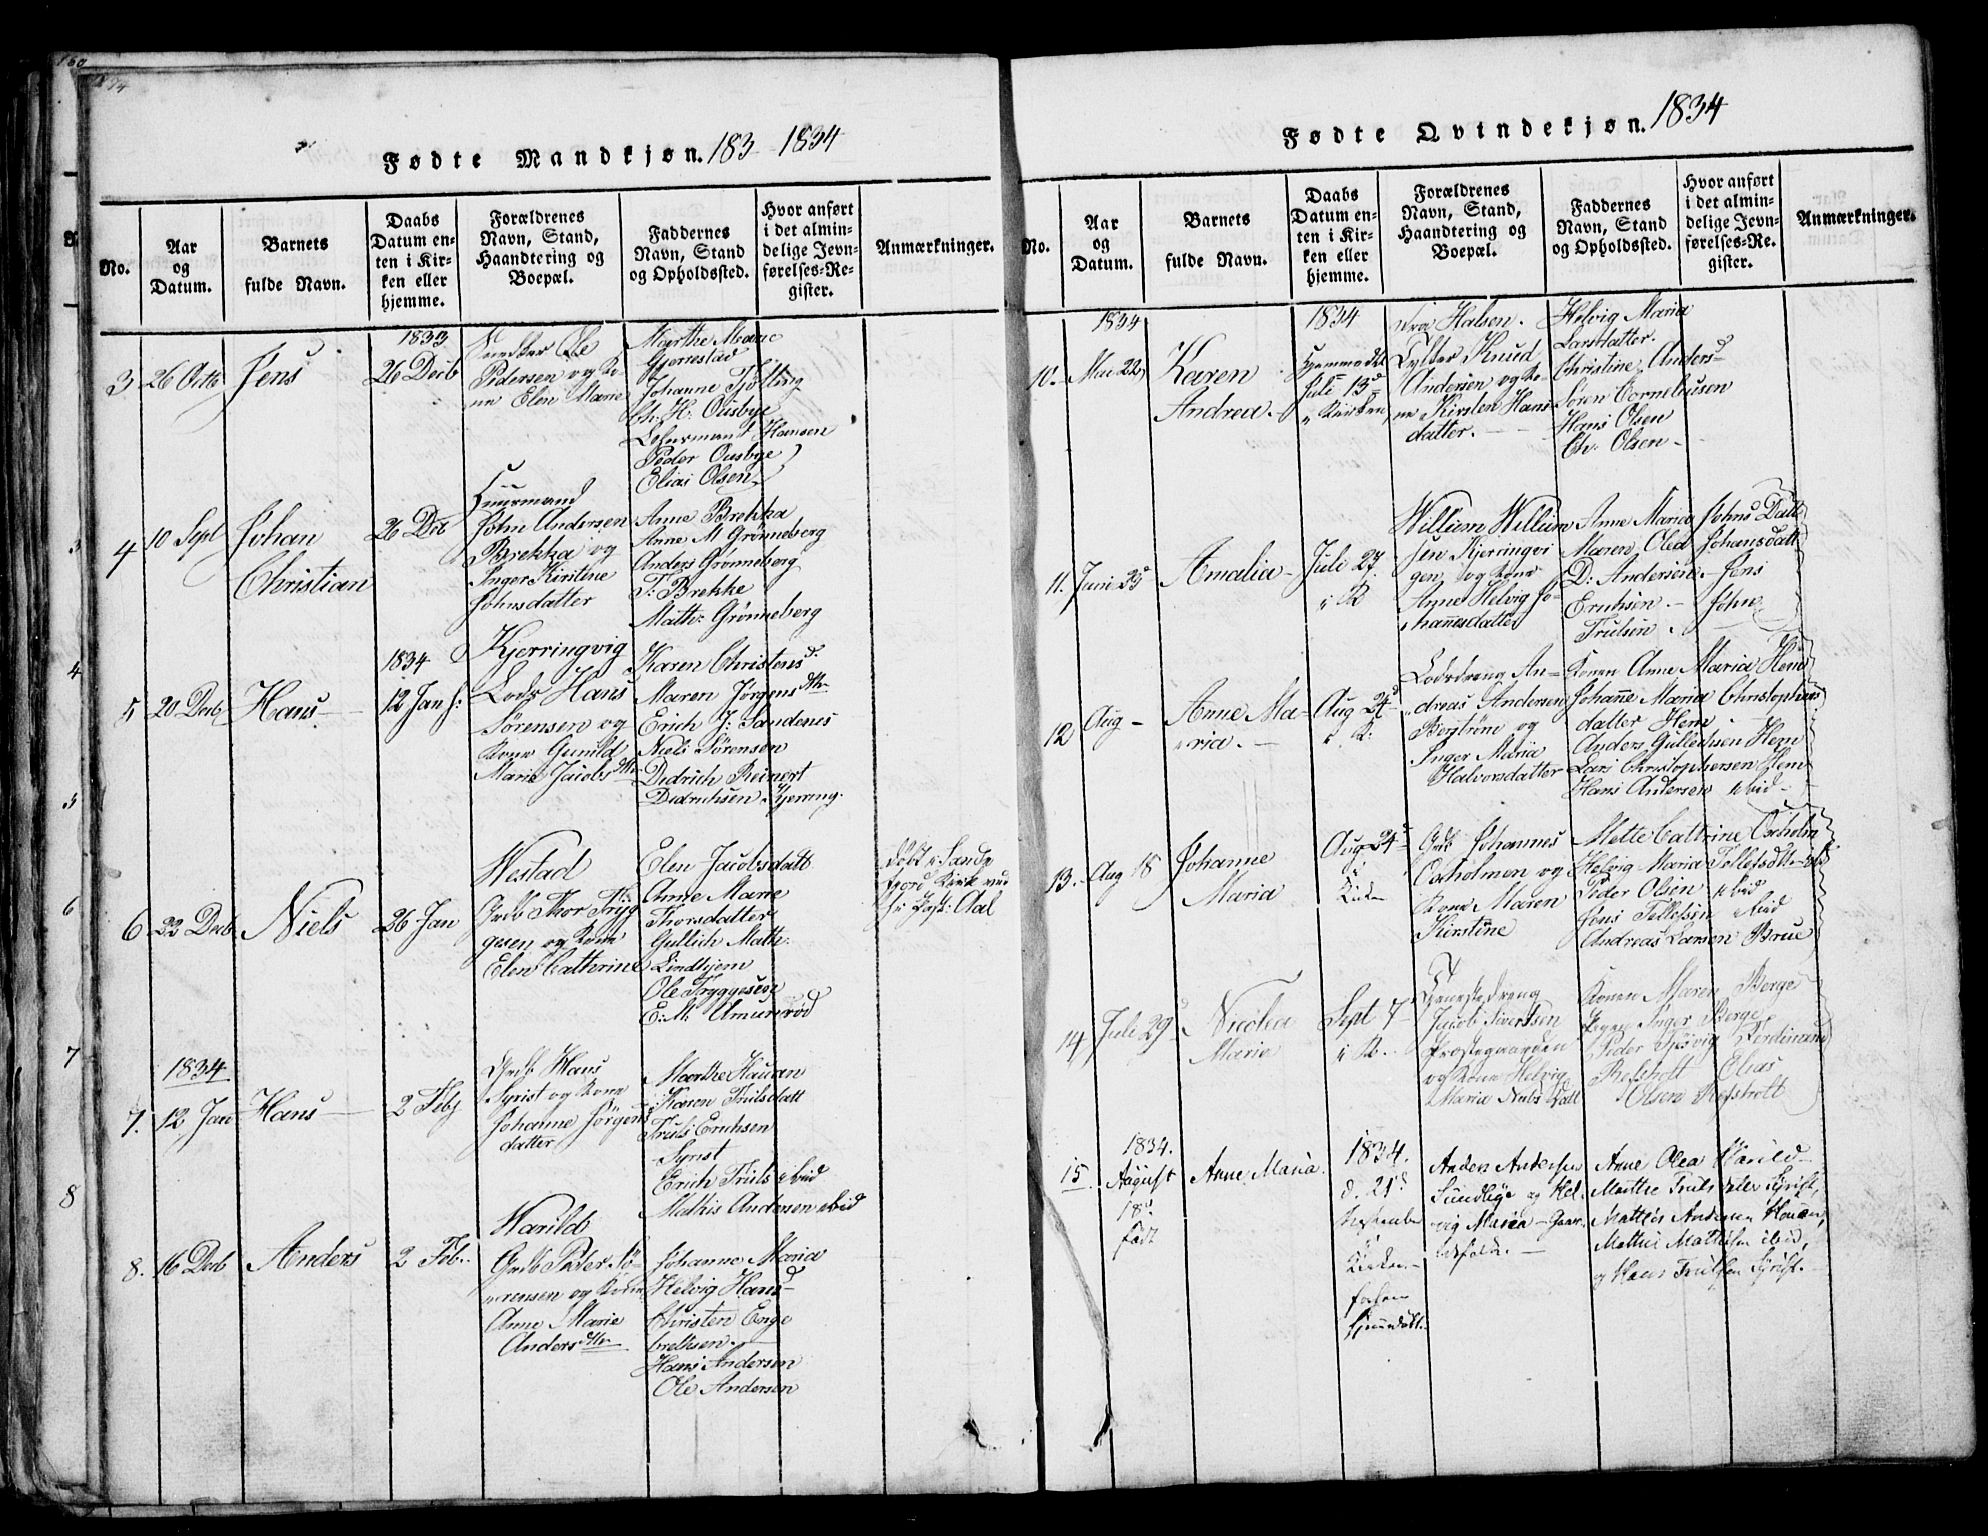 Fødte Mandkjøn. 183 1834
No.
Aar og Datum.
Barnets fulde Navn.
Daabs Datum enten i Kirken eller hjemme.
Forældrenes Navn, Stand, Haandtering og Boepæl.
Faddernes Navn, Stand og Opholdssted.
Hvor anført i det almindelige Jevnførelses-Register.
Anmærkninger.
3
26 Octb
Jens
1833
26 Decb
Ole
Pedersen og Ko-
ne Elen Marie
Marthe Marie
Gjerrestad
Johanne Tjøtling
Ch: H: Ousbye
Hansen
Peder Ousbye
Elias Olsen
4
10 Sept
Johan
Christian
26 Dcb
Huusmand
John Andersen
Brekka og
Inger Kirstine
Johnsdatter
Anne Brekka
Anne M Grønneberg
Anders Grønneberg
T: Brekke
Math: Grønneberg
5
20 Decb
Hans
1834
12 Jan
Kjerringvig
Lods Hans
Sørensen og
Kone Gunild
Marie Jacobsdttr
Karen Christensd:
Maren Jørgensdttr
Erich J: Sandenes
Niels Sørensen
Didrich Reinert
Didrichsen Kjerring.
6
22 Decb
Niels
26 Jan
Westad
Grdb Thor Tryg
gesen og Kone
Elen Cathrine
Elen Jacobsdatt
Anne Marie
Thorsdatter
Gullich Math:
Lindhjem
Ole Tryggesen
E: M: Amundrød
døbt i Sande
fjord Kirke
Aal
7.
1834
12 Jan
Hans
2 Feb
Hans
Syrist og Kone
Johanne Jørgens
datter
Marthe Hauan
Karen Trulsdatt
Truls Erichsen
Syrist
Erich Truls ibid
Mathis Andersen ibid
8.
16 Decb
Anders
2 Feb.
Warild
Grdb Peder Sø-
rensen og Kone
Anne Marie
Andersdttr
Johanne Maria
Helvig Hansd
Christen Enge
brethsen.
Hans Andersen
Ole Andersen
Fødte Qvindekjøn. 1834
No.
Aar og Datum.
Barnets fulde Navn.
Daabs Datum enten i Kirken eller hjemme.
Forældrenes Navn, Stand, Haandtering og Boepæl.
Faddernes Navn, Stand og Opholdssted.
Hvor anført i det almindelige Jevnførelses-Register.
Anmærkninger.
10.
1834
Mai 22
Karen
Andrea.
1834
Hjemmedøbt
Juli 13d
i Kirken
Halsen.
Knud
Andersen og Ko-
ne Kirsten Hans
datter.
Helvig Maria
Larsdatter.
Christine Anders-
Søren Corneliusen
Hans Olsen
Ch: Olsen
11.
Juni 25
Amalia
Juli 27
i K
Willum Willum
sen Kjerringvi
gen og Kone
Anne Helvig Jo-
hannesdatter
Anne Maria Johns Datt
Maren Olea Johansdatt
D: Andersen. Jens
Erichsen. John
Trulsen.
12
Aug
Anne Ma-
ria.
Aug 24d
i K:
Lodsdreng An-
dreas Andersen
Bergtrøne og
Inger Maria
Halvorsdatter
Konen Anne Maria Hem
Johanne Maria Christophers
datter Hem
Anders Gullichsen Hem
Lars Christophersen Hem
Hans Andersen ibid
13.
Aug 18
Johanne
Maria
Aug 24d
i
Kirken
Grdb Johannes
Oxholmen og
Kone Maren
Kirstine
Mette Cathrine Oxholm
Helvig Maria Tollefsdtt
Peder Olsen ibid
Jens Tollefsen ibid
Andreas Larsen Brue
14
Juli 29d
Nicolea
Maria
Sept 7
i K.
Tjenestedreng
Jacob Sivertsen
Præstegaarden
og Kone Helvig
Maria Niels Datt
Konen Maren Berge
Inger Berge
Peder Tjøsvig Ferdinand
Refsholt Elias
Olsen Refsholt
15
1834.
August
18d
født
Anne Maria.
1834.
d. 21d
Septembr
i
Kirken
Anders Andersen
Sundlyge og Hel
vig Maria
Anne Olea Varild
Marthe Truls datter Syrist,
Mathis Andersen Hauan,
Mathis Mathisen ibid,
og Hans Trulsen Syrist.